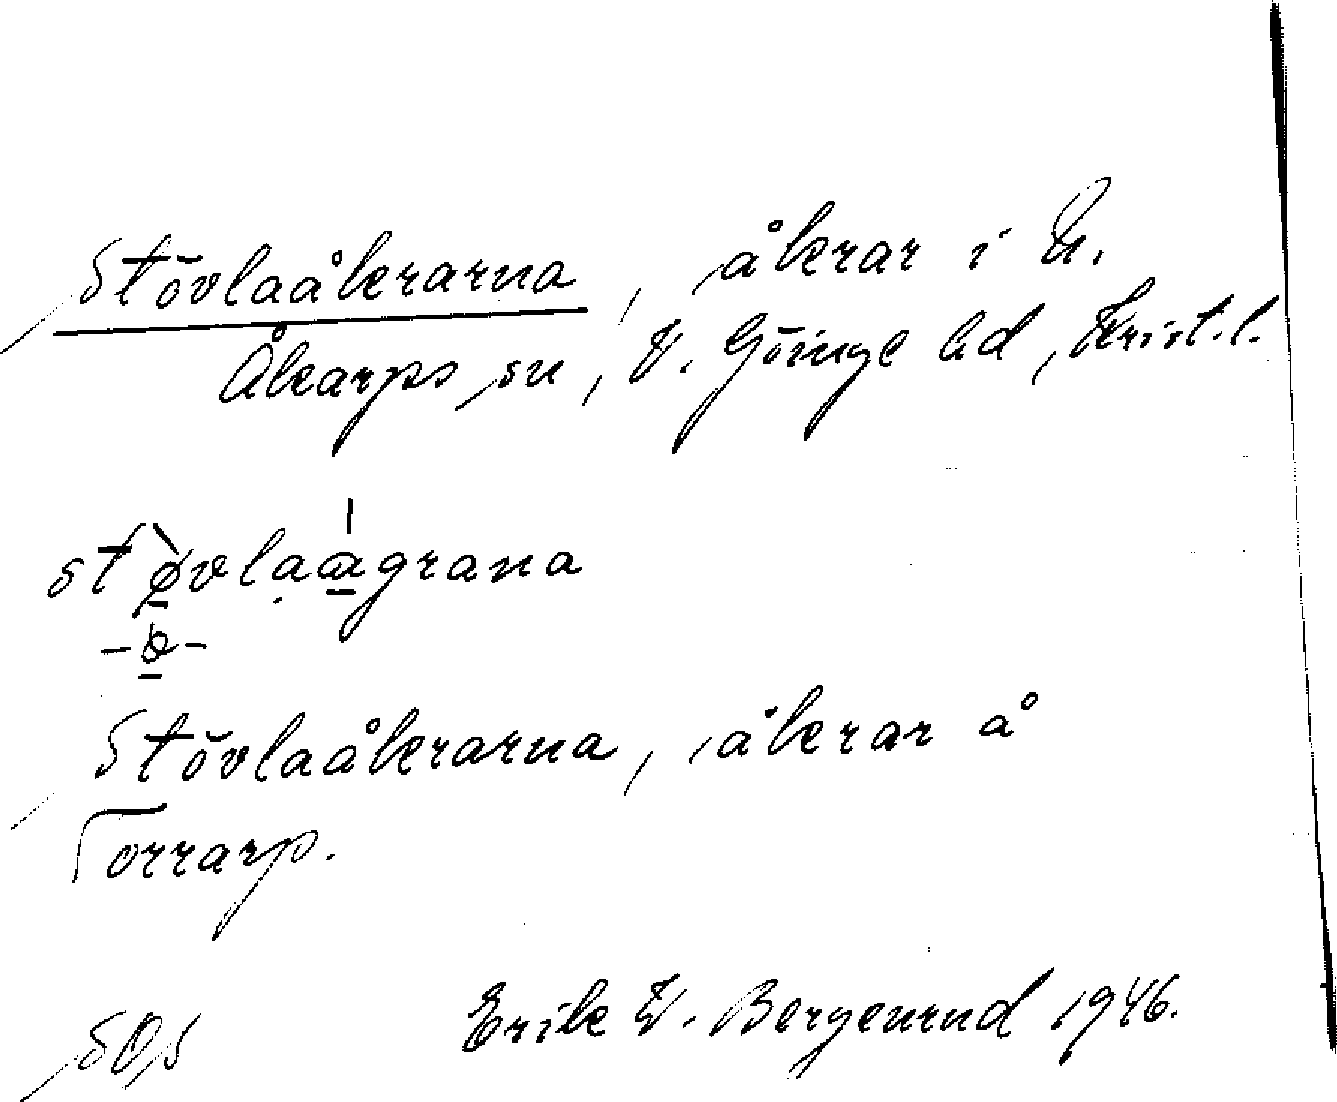 Stövlaåkrarna, åkrar i N.
Åkarps sn, V. Göinge hd, Krist.l.
stø̀vlaa̱grana
-ɵ̱-
Stövlaåkrarna, åkrar å
Torrarp.
Erik W. Bergenrud 1946.